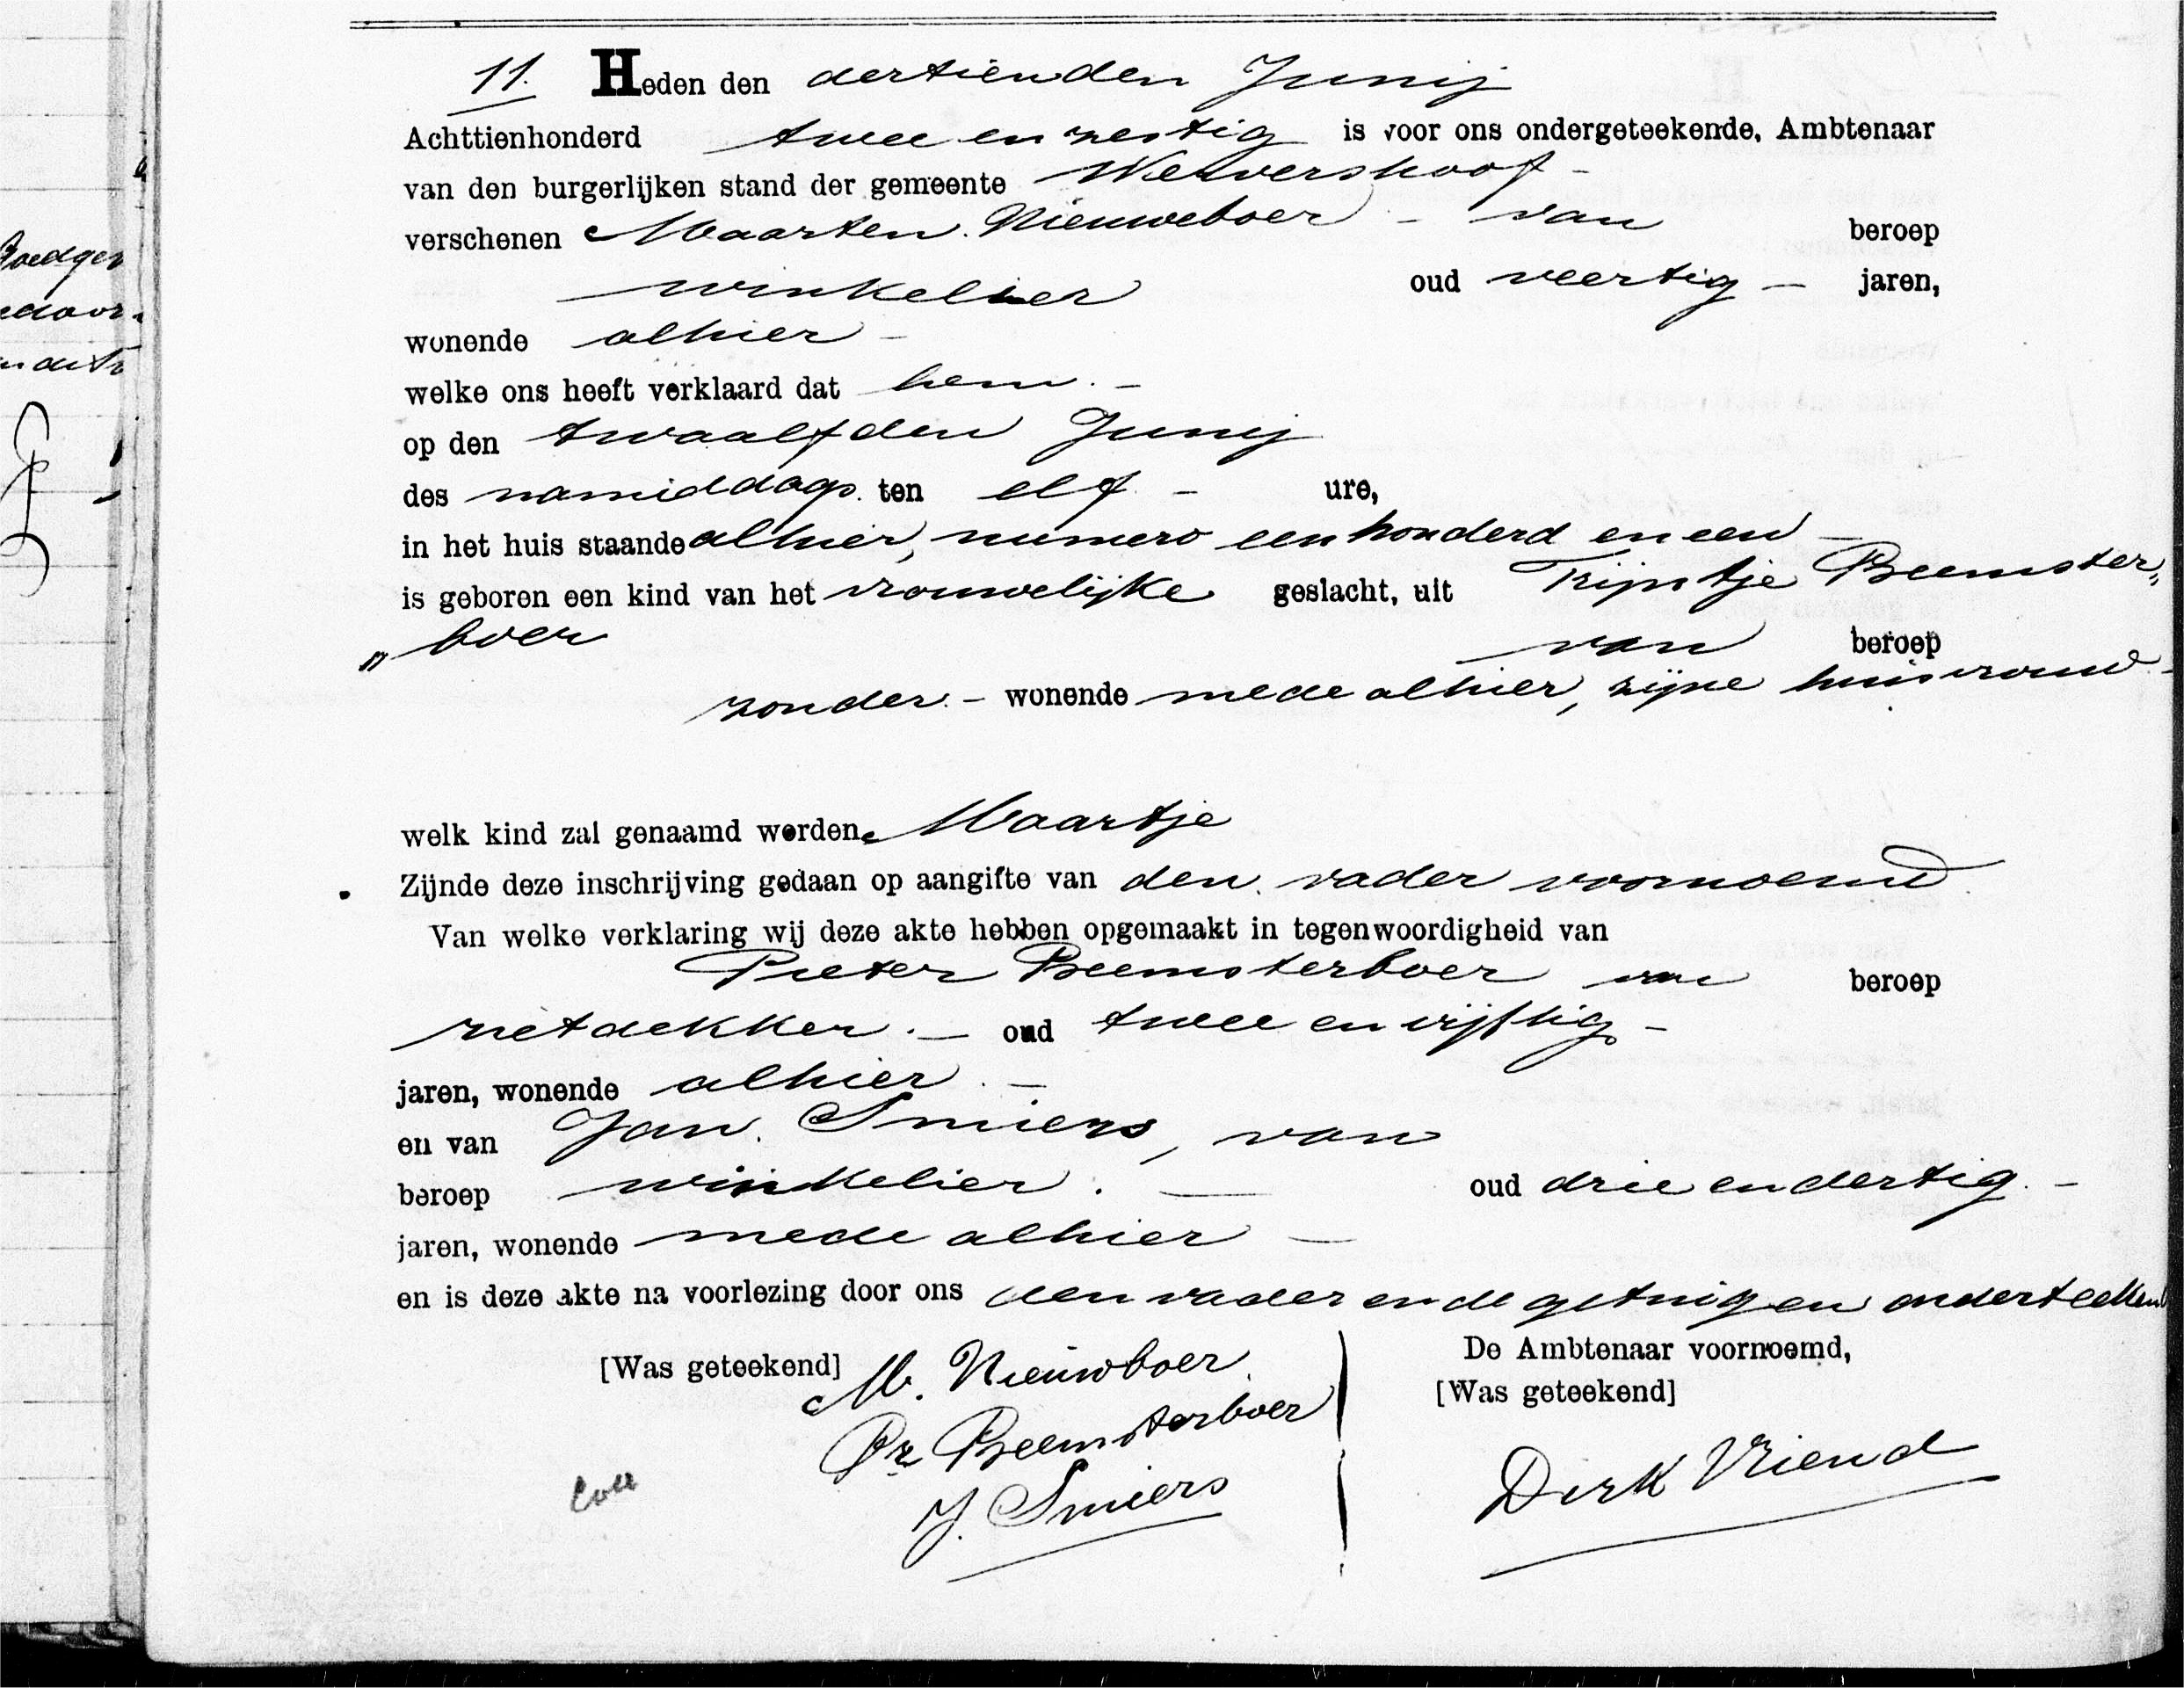 11. Heden den dertienden Junij
Achttienhonderd twee en zestig is voor ons ondergeteekende, Ambtenaar
van den burgerlijken stand der gemeente Wervershoof -
verschenen Maarten Nieuweboer - van beroep
winkelier oud veertig - jaren,
wonende alhier -
welke ons heeft verklaard dat hem. -
op den twaalfden Junij
des namiddags ten elf - ure,
in het huis staande alhier, numero een honderd en een -
is geboren een kind van het vrouwelijke geslacht, uit Trijntje Beemster„
„boer van beroep
zonder. - wonende mede alhier, zijne huisvrouw -
welk kind zal genaamd worden Maartje
Zijnde deze inschrijving gedaan op aangifte van den vader voornoemd
Van welke verklaring wij deze akte hebben opgemaakt in tegenwoordigheid van
Pieter Beemsterboer van beroep
rietdekker. - oud twee en vijftig -
jaren, wonende alhier. -
en van Jan Smiers, van
beroep winkelier. - oud drie en dertig. -
jaren, wonende mede alhier -
en is deze akte na voorlezing door ons den vader en de getuigen onderteekend
[Was geteekend] M. Nieuwboer
Pr Beemsterboer
J. Smiers
De Ambtenaar voornoemd,
[Was geteekend]
Dirk Vriend
Coll